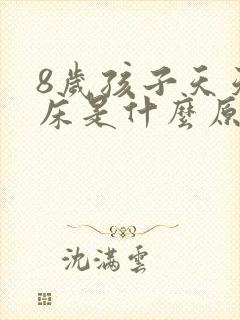 8歲孩子天天
床是什麼原
沈滿雲